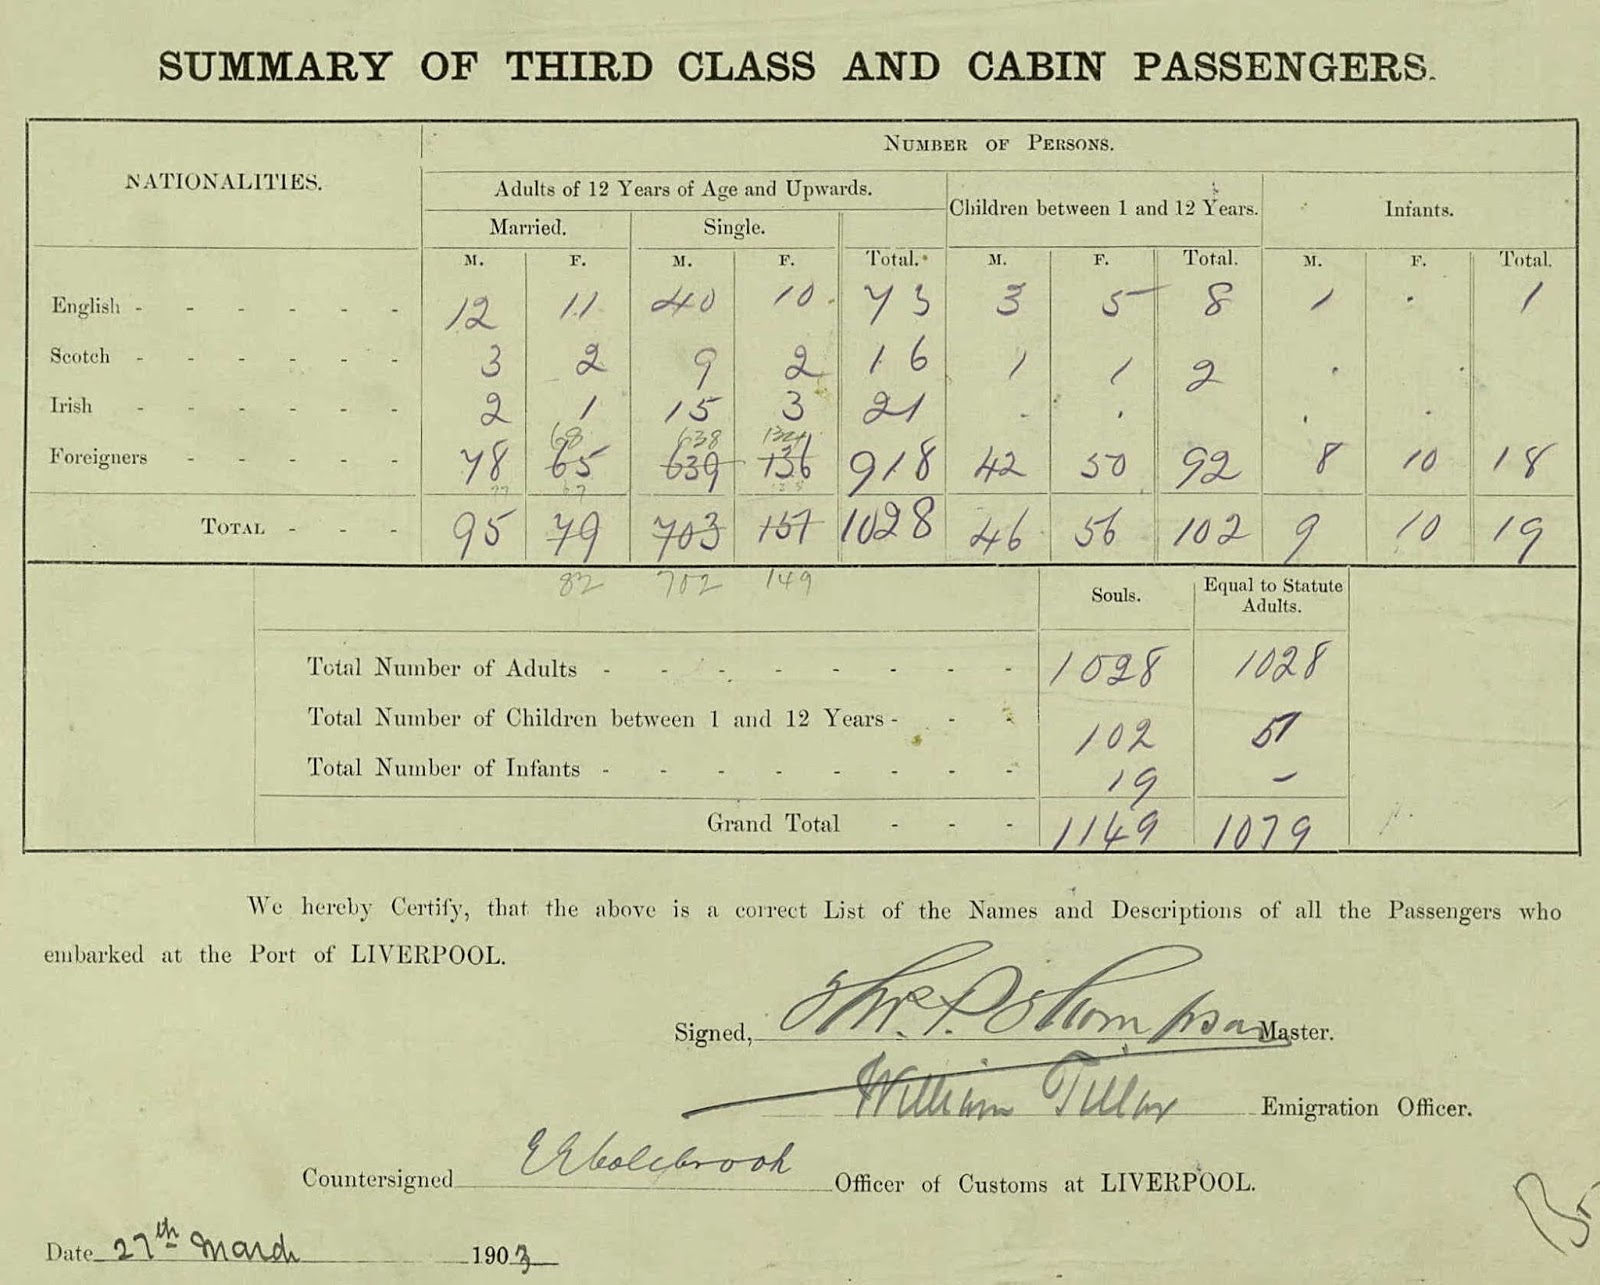 SUMMARY OF THIRD CLASS AND CABIN PASSENGERS.
NUMBER OF PERSONS.
NATIONALITIES.
Adults of 12 Years of Age and Upwards.
Children between 1 and 12 Years.
Infants.
Married. Single.
M. F. M. F. Total. M. F. Total. M. F. Total.
English - - - - - - 12 11 40 10 73 3 5 8 1 . 1
Scotch - - - - - - 3 2 9 2 16 1 1 2 . .
Irish - - - - - - 2 1 15 3 21 . . . .
68 638 134
Foreigners - - - - - 78 65 639 136 918 42 50 92 8 10 18
77 67
TOTAL - - - 95 79 703 151 1028 46 56 102 9 10 19
82 702 149
Souls. Equal to Statute Adults.
Total Number of Adults - - - - - - - - 1028 1028
Total Number of Children between 1 and 12 Years - - - 102 51
Total Number of Infants - - - - - - - - 19 -
Grand Total - - - 1149 1079
We hereby Certify, that the above is a correct List of the Names and Descriptions of all the Passengers who
embarked at the Port of LIVERPOOL.
Signed, P. Thompson Master.
William Emigration Officer.
Countersigned Officer of Customs at LIVERPOOL.
Date 27th March 1903